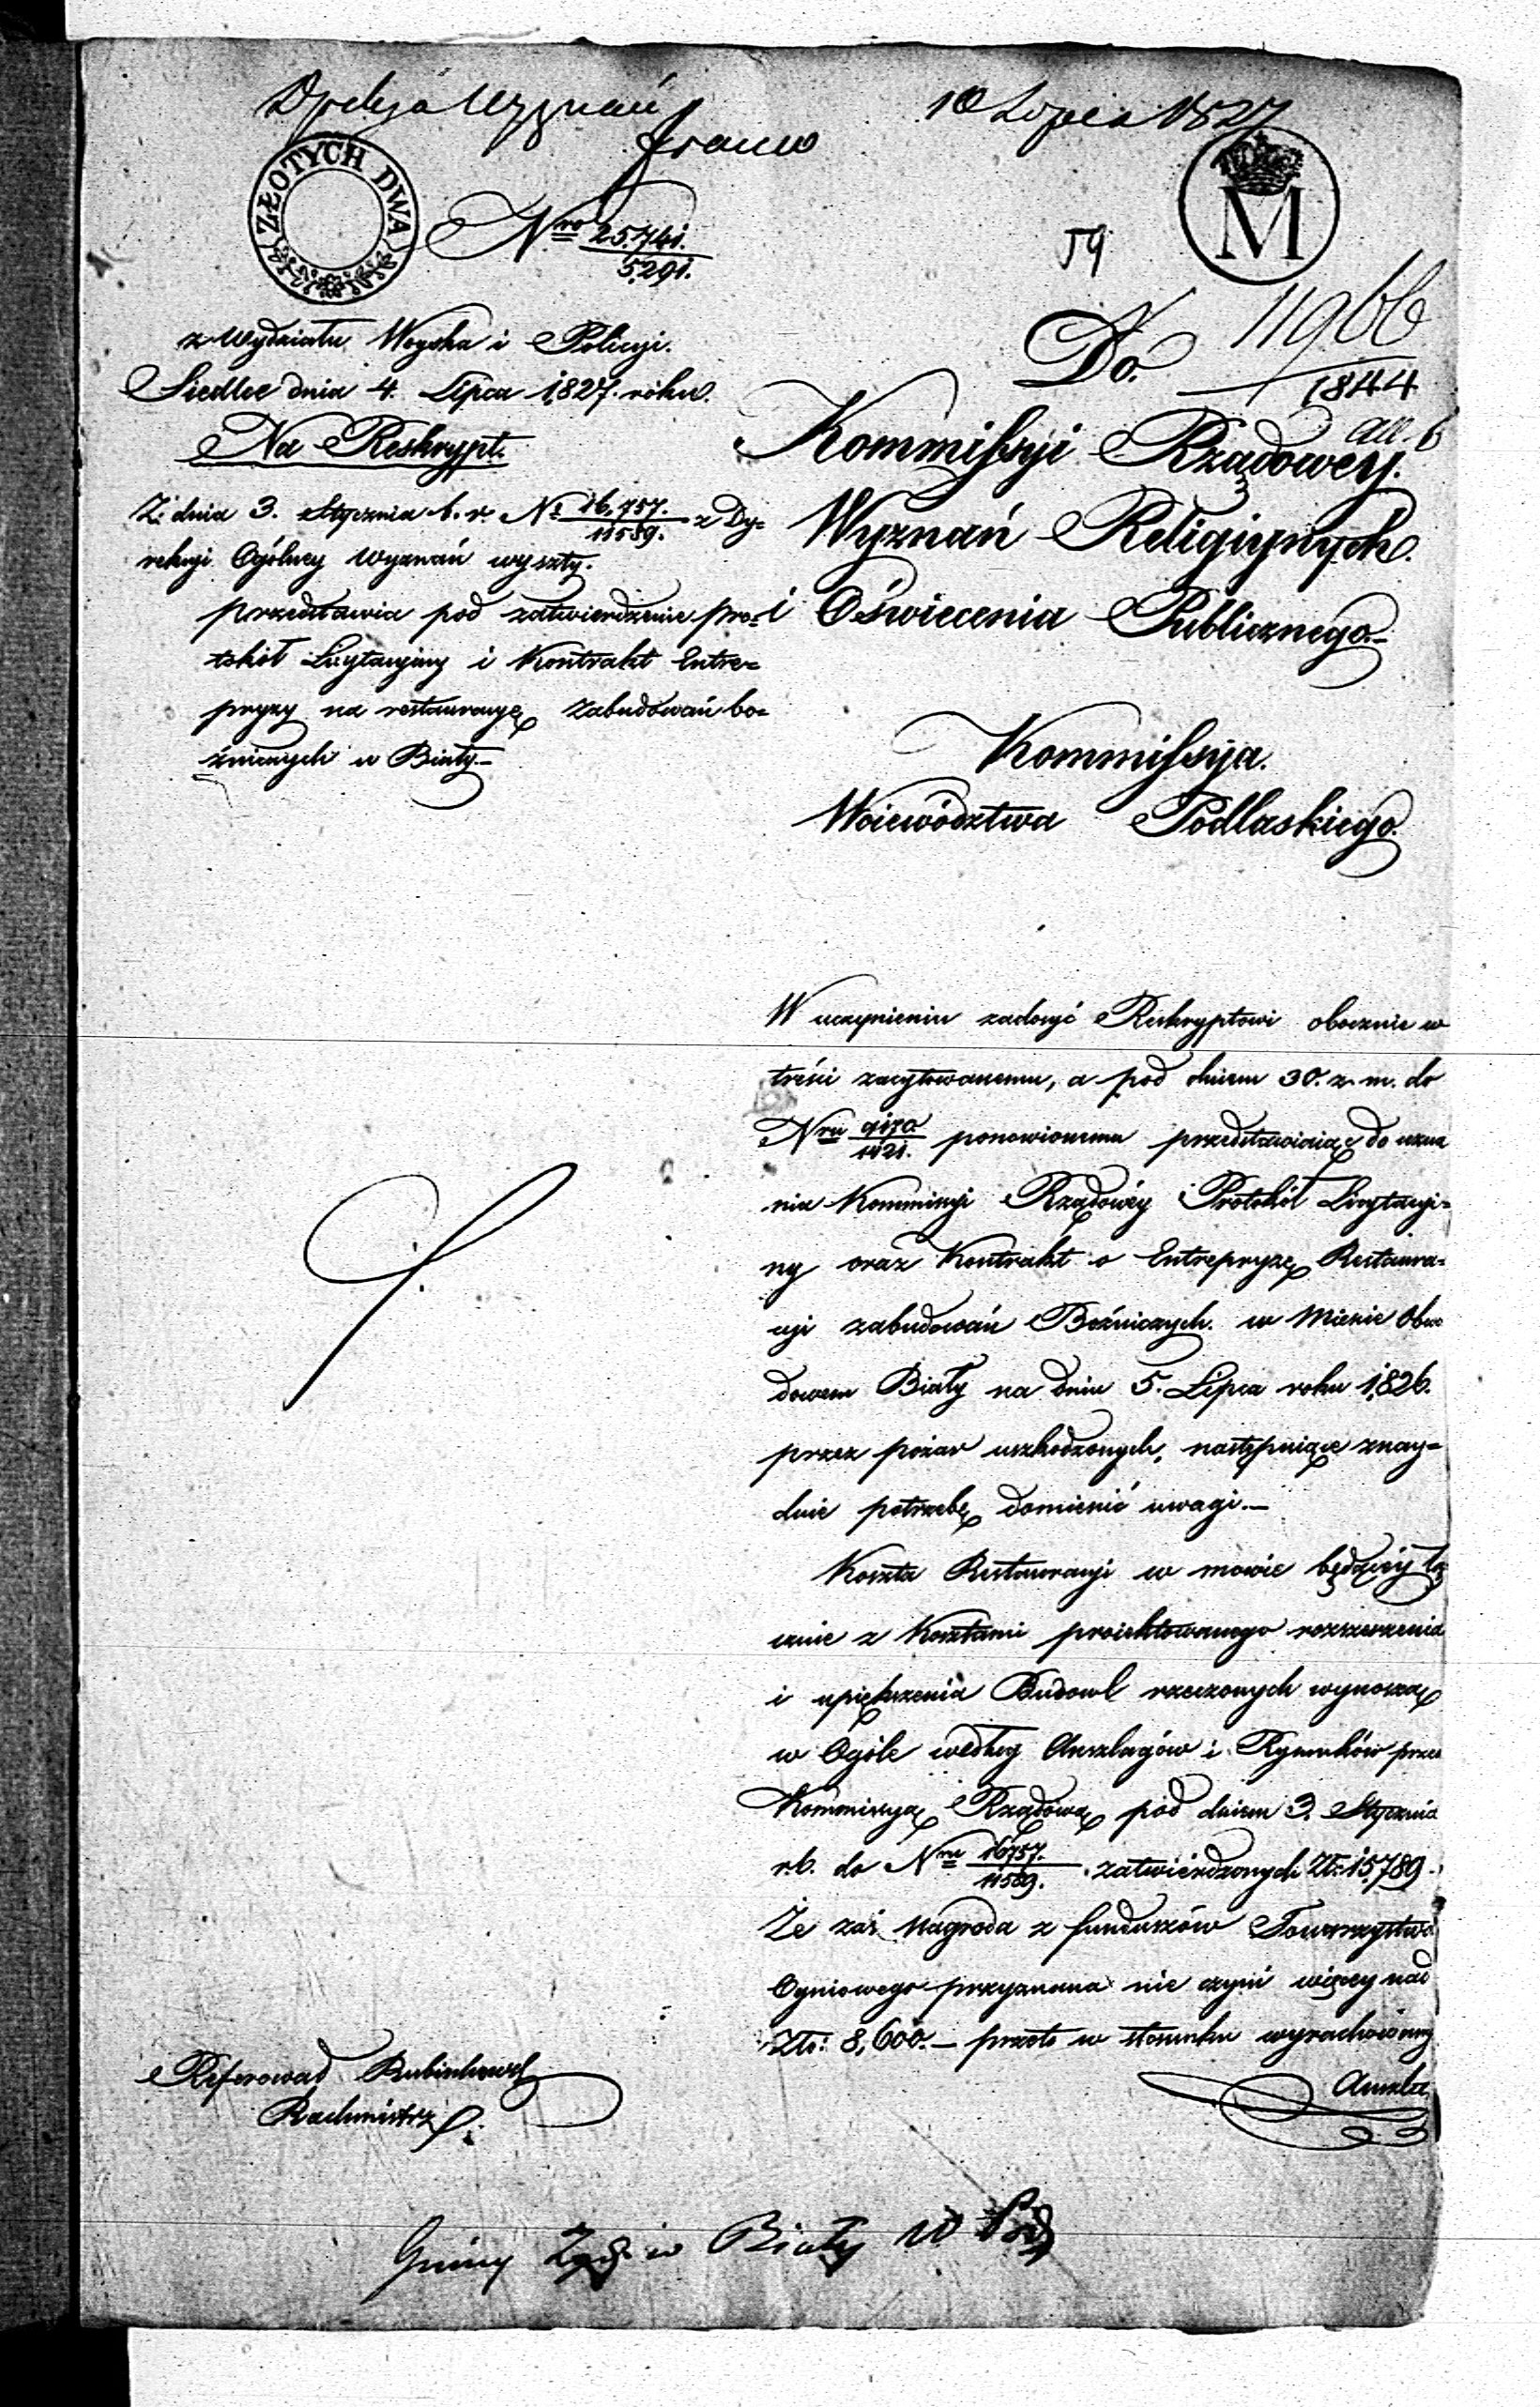 Dyrekcja Wyznań
franco
10 Lipca 1827
ZŁOTYCH DWA
M
Nro 25.741.
5291.
59
11966
1844
All. 6
z Wydziału Woyska i Policyi.
Siedlce dnia 4. Lipca 1827. roku.
Na Reskrypt.
Z dnia 3. Stycznia b. r. No 16,757. z Dy=
11589.
rekcyi Ogólney Wyznań wyszły.
przedstawia pod zatwierdzenie pro=
tokół Licytacyiny i Kontrakt Entre=
pryzy na restauracyę Zabudowań bo=
żniczych w Biały.–
Do
Kommissyi Rządowey.
Wyznań Religiynych.
i Oświecenia Publicznego.–
Kommissya.
Woiewództwa Podlaskiego.
W uczynieniu zadosyć Reskryptowi obocznie w
treści zacytowanemu, a pod dniem 30. z. m. do
Nru 9170
1421. ponowionemu przedstawiaiąc do uzna
nia Kommissyi Rządowéy Protokół Licytacyi=
ny oraz Kontrakt o Entrepryzę Restaura=
cyi zabudowań Bożniczych. w Mieście Obwo
dowem Biały na dniu 5. Lipca roku 1826.
przez pożar uszkodzonych, następuiące znay=
duie potrzebę domienić uwagi.–
Koszta Restauracyi w mowie będącéy łą
cznie z Kosztami proiektowanego rozszerzenia
i upiększenia Budowl rzeczonych wynoszą
w Ogóle według Anszlagów i Rysunków przez
Kommissyą Rządową pod dniem 3. Stycznia
r.b. do Nru 16757.
11589. zatwiérdzonych Zł: 15,789.
Że zaś Nagroda z funduszów Towarzystwa
Ogniowego przyznana nie czyni więcey nad
Złt: 8,600.– przeto w stosunku wyrachowaney
Anszla
Referował
Rachmistrz
Gminy Żyd. w Biały W Pod